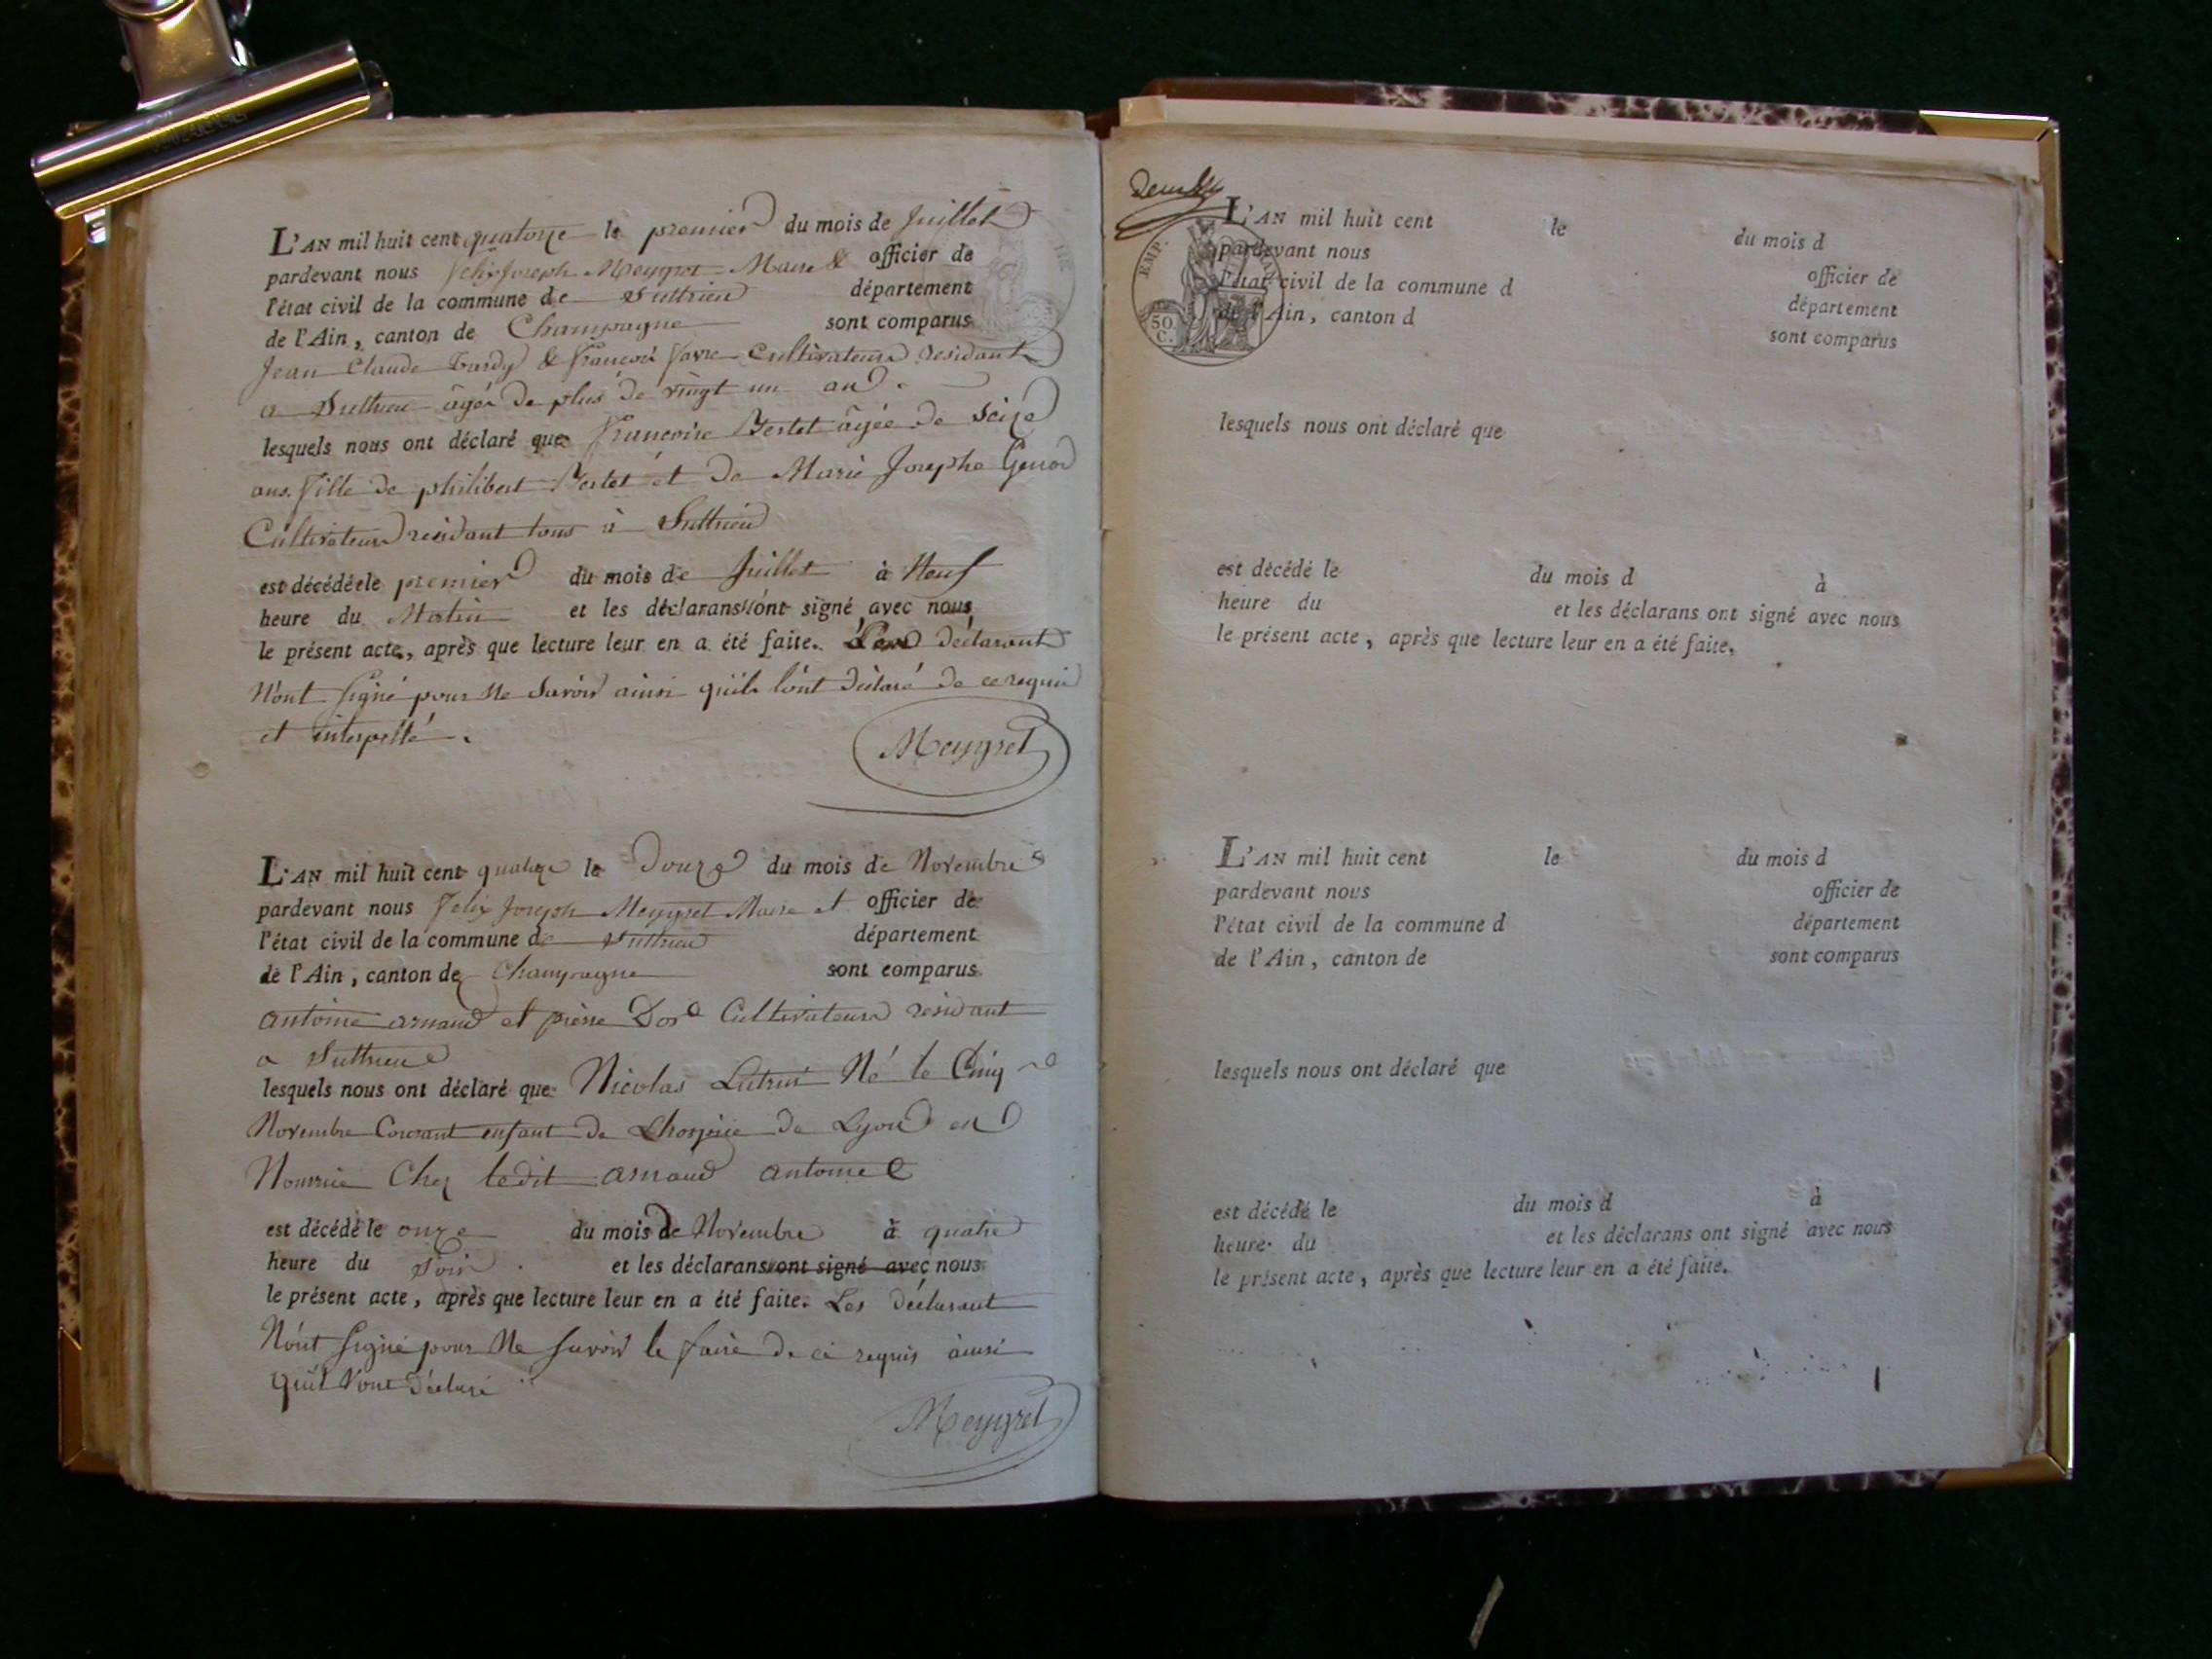 L'AN mil huit cent quatorze le premier du mois de Juillet
pardevant nous Felix Joseph Meygret Maire & officier de
l'état civil de la commune de Sutrieu département
de l'Ain, canton de Champagne sont comparus
Jean Claude Tardy & François Favre Cultivateurs residant
a Suthrieu agés de plus de vingt un ans.
lesquels nous ont déclaré que Françoise Bertet âgée de Seize
ans. fille de philibert Bertet et de Marie Josephe Genod
Cultivateurs residant tous à Suttrieu
est décédée le premier du mois de Juillet à Neuf
heure du Matin et les déclarans n'ont signé avec nous
le présent acte, après que lecture leur en a été faite. Les déclarant
N'ont signé pour Ne Savoir ainsi qu'ils l'ont déclaré de ce requis
et interpellé.
Meygret
L'AN mil huit cent quatorze le Douze du mois de Novembre
pardevant nous Felix Joseph Meygret Maire et officier de
l'état civil de la commune de Suthrieu département
de l'Ain, canton de Champagne sont comparus
antoine arnaud et pierre Dore Cultivateurs residant
a Suttrieu
lesquels nous ont déclaré que Nicolas Lutrin Né le Cinq
Novembre Courant enfant de de Lyon en
Nourrice Chez ledit arnaud antoine
est décédé le onze du mois de Novembre à quatre
heure du Soir. et les déclarans ont signé avec nous
le présent acte, après que lecture leur en a été faite. Les déclarant
N'ont signé pour Ne savoir le faire de ce requis ainsi
qu'il l'ont déclaré
Meygret
EMP.
50.
C.
L'AN mil huit cent le du mois d
pardevant nous officier de
l'état civil de la commune d département
de l'Ain, canton d sont comparus
lesquels nous ont déclaré que
est décédé le du mois d à
heure du et les déclarans ont signé avec nous
le présent acte, après que lecture leur en a été faite.
L'AN mil huit cent le du mois d
pardevant nous officier de
l'état civil de la commune d département
de l'Ain, canton de sont comparus
lesquels nous ont déclaré que
est décédé le du mois d à
heure du et les déclarans ont signé avec nous
le présent acte, après que lecture leur en a été faite.